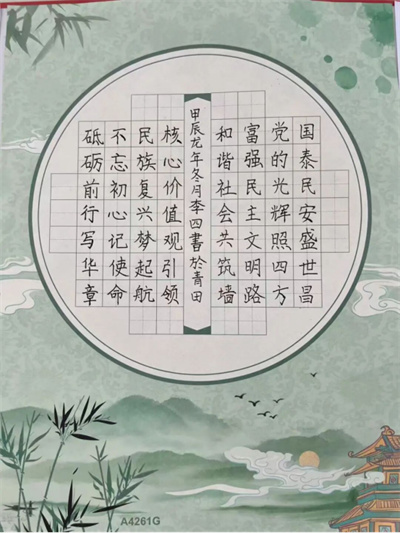 国泰民安盛世昌
党的光辉照四方
富强民主文明路
和谐社会共筑墙
甲辰龙年冬月李四書於青田
核心价值观引领
民族复兴梦起航
不忘初心记使命
砥砺前行写华章
A4261G